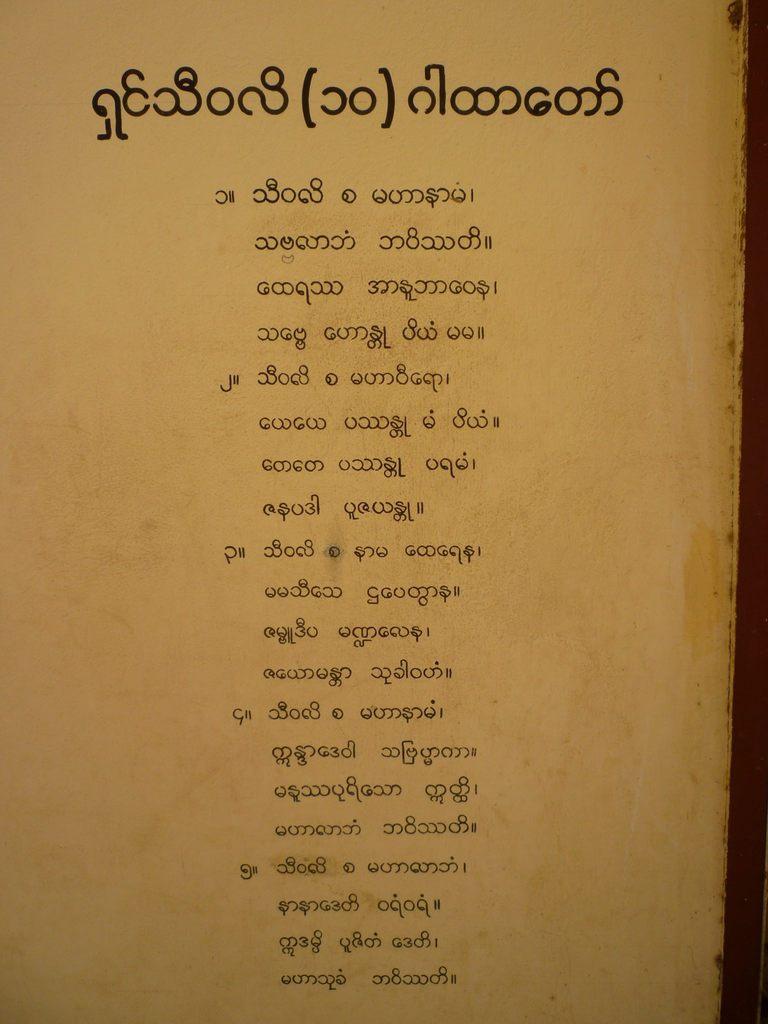 ရှင်သီဝလိ (၁၀) ဂါထာတော်
၁။ သီဝလိ စ မဟာနာမံ၊
သဗ္ဗလာဘံ ဘဝိဿတိ။
ထေရဿ အာနုဘာဝေန၊
သဗ္ဗေ ဟောန္တု ပိယံ မမ။
၂။ သီဝလိ စ မဟာဝီရော၊
ယေယေ ပဿန္တု မံ ပိယံ။
တေတေ ပဿန္တု ပရမံ၊
ဇနပဒါ ပူဇယန္တု။
၃။ သီဝလိ စ နာမ ထေရေန၊
မမသီသေ ဌပေတွာန။
ဇမ္ဗူဒီပ မဏ္ဍလေန၊
ဇယောမန္တာ သုခါဝဟံ။
၄။ သီဝလိ စ မဟာနာမံ၊
ဣန္ဒာဒေဝါ သဗြဟ္မာကာ။
မနူဿပုရိသော ဣတ္ထိ၊
မဟာလာဘံ ဘဝိဿတိ။
၅။ သီဝလိ စ မဟာလာဘံ၊
နာနာဒေတိ ဝရံဝရံ။
ဣဒမ္ပိ ပူဇိတံ ဒေတိ၊
မဟာသုခံ ဘဝိဿတိ။